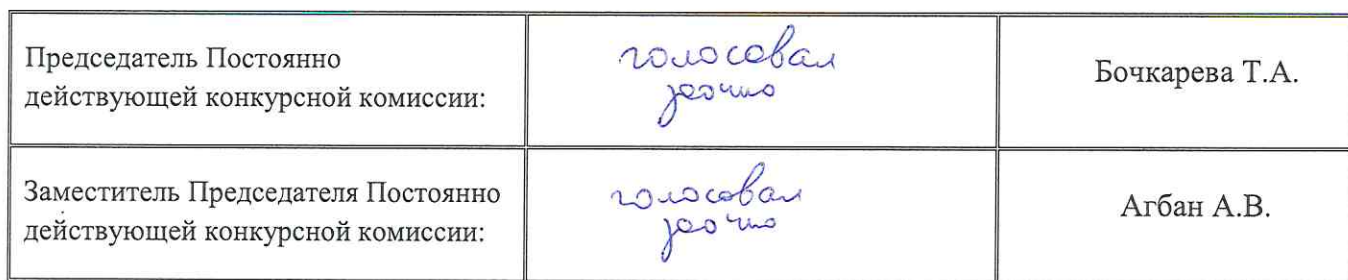 Председатель Постоянно
действующей конкурсной комиссии:
голосовал
заочно
Бочкарева Т.А.
Заместитель Председателя Постоянно
действующей конкурсной комиссии:
голосовал
заочно
Агбан А.В.